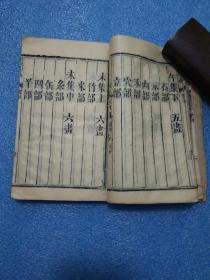 午集下 五畫
石部
示部
禸部
禾部
穴部
立部
未集上 六畫
竹部
米部
未集中 六畫
糸部
缶部
网部
羊部